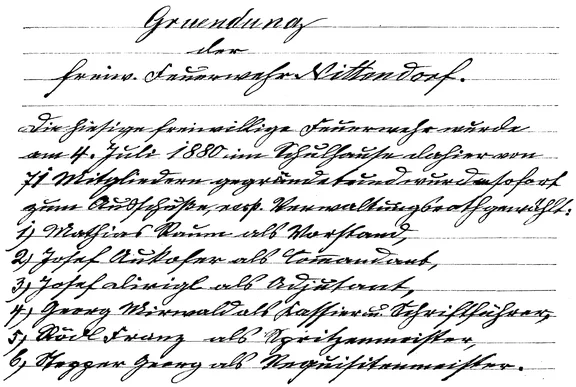 Gruendung
der
freiw. Feuerwehr Nittendorf.
Die hiesige freiwillige Feuerwehr wurde
am 4. Juli 1880 im Schulhause dahier von
71 Mitgliedern gegründet und wurde sofort
zum Ausschuße, resp. Verwaltungsrath gewählt:
1) Mathias Raum als Vorstand,
2) Josef Aukofer als Comandant,
3) Josef als Adjutant,
4) Georg Mirwald als Kassier u. Schriftführer,
5) Rödl Franz als Spritzenmeister,
6) Stepper Georg als Requisitenmeister.